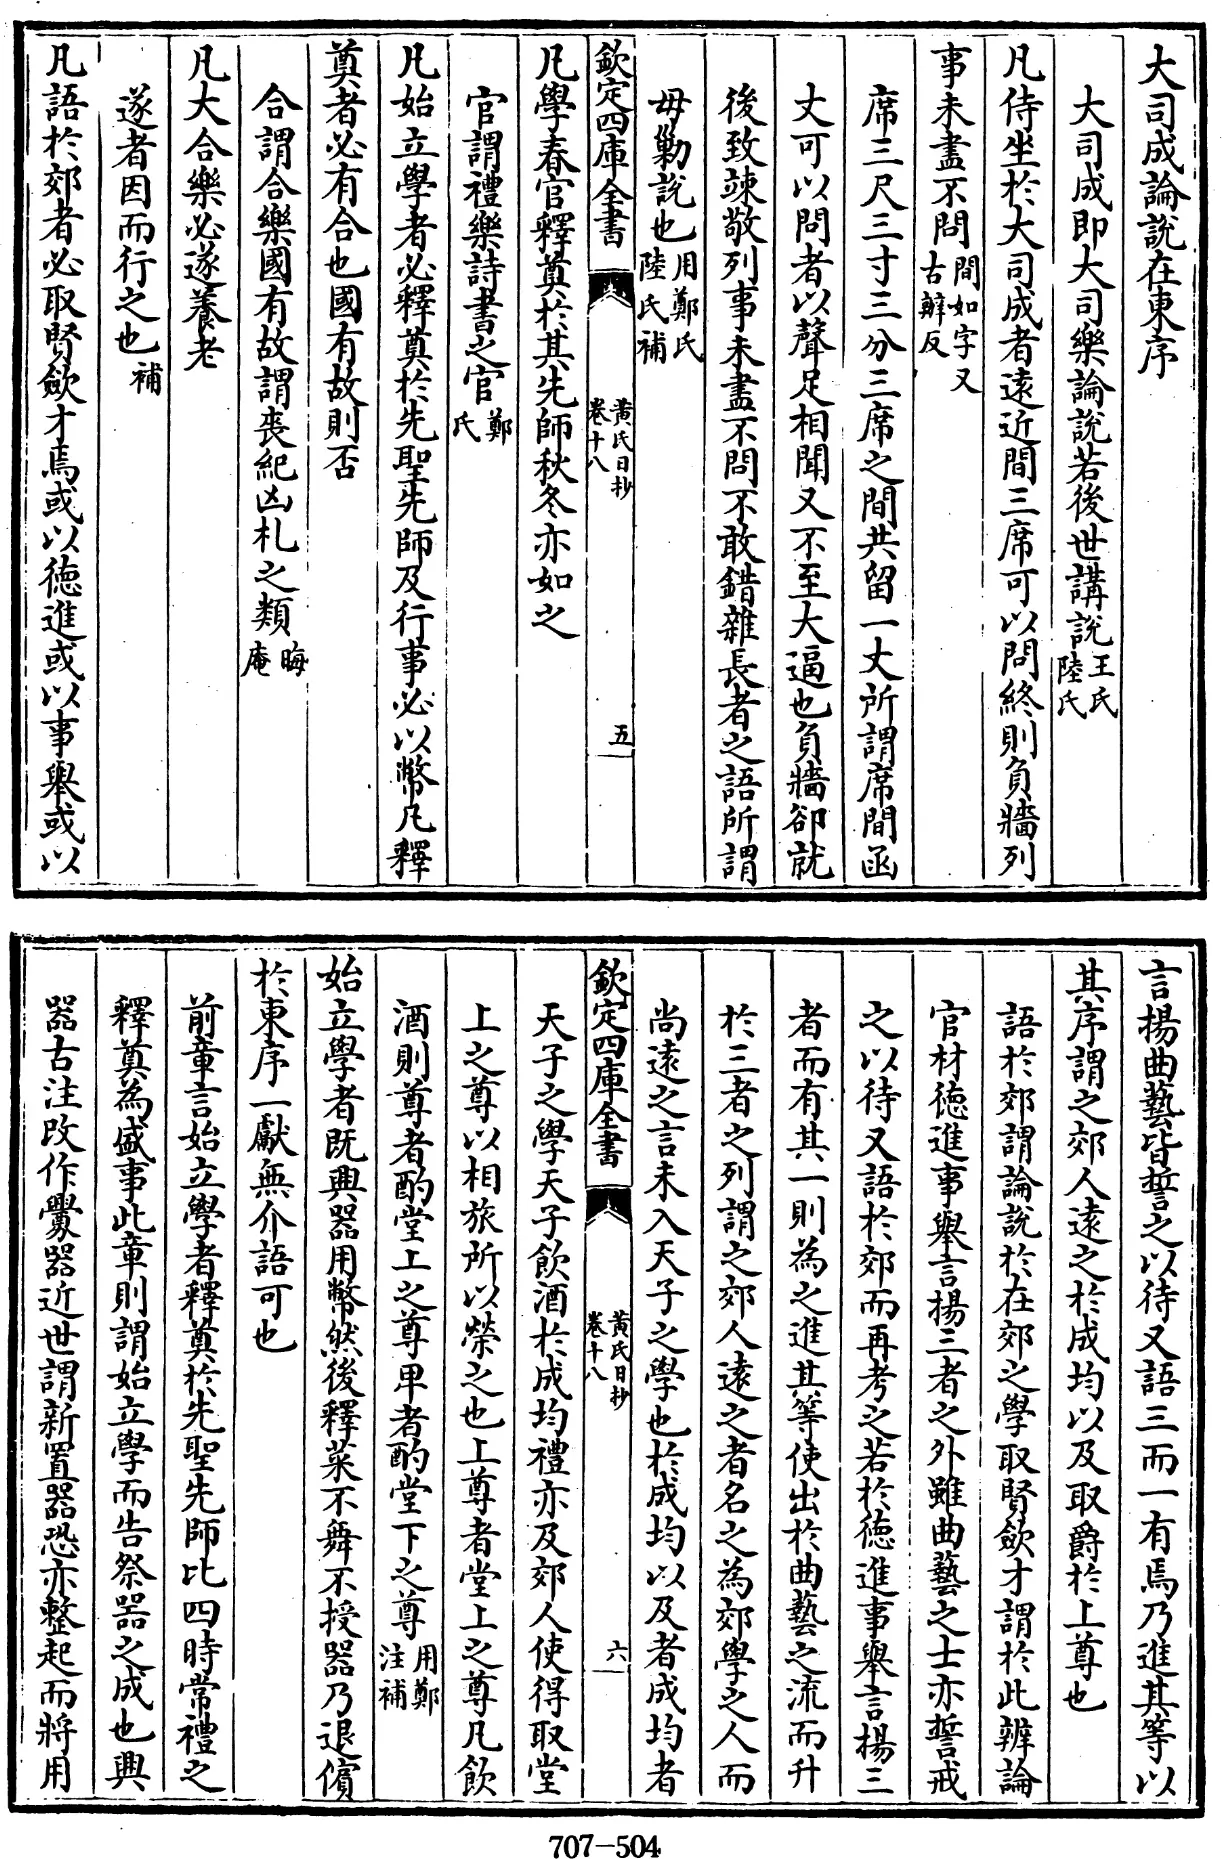 大司成論說在東序
大司成即大司樂論說若後世講說王氏陸氏
凡侍坐於大司成者遠近間三席可以問終則負牆列
事未盡不問間如字又古辨反
席三尺三寸三分三席之間共留一丈所謂席間函
丈可以問者以聲足相聞又不至大逼也負牆卻就
後致竦敬列事未盡不問不敢錯雜長者之語所謂
毋勦說也用鄭氏陸氏補
欽定四庫全書 黃氏日抄卷十八 五
凡學春官釋奠於其先師秋冬亦如之
官謂禮樂詩書之官鄭氏
凡始立學者必釋奠於先聖先師及行事必以幣凡釋
奠者必有合也國有故則否
合謂合樂國有故謂喪紀凶札之類晦庵
凡大合樂必遂養老
遂者因而行之也補
凡語於郊者必取賢斂才焉或以德進或以事舉或以
言揚曲藝皆誓之以待又語三而一有焉乃進其等以
其序謂之郊人遠之於成均以及取爵於上尊也
語於郊謂論說於在郊之學取賢斂才謂於此辨論
官材德進事舉言揚三者之外雖曲藝之士亦誓戒
之以待又語於郊而再考之若於德進事舉言揚三
者而有其一則為之進其等使出於曲藝之流而升
於三者之列謂之郊人遠之者名之為郊學之人而
尚遠之言未入天子之學也於成均以及者成均者
欽定四庫全書 黃氏日抄卷十八 六
天子之學天子飲酒於成均禮亦及郊人使得取堂
上之尊以相旅所以榮之也上尊者堂上之尊凡飲
酒則尊者酌堂上之尊卑者酌堂下之尊用鄭注補
始立學者既興器用幣然後釋菜不舞不授器乃退儐
於東序一獻無介語可也
前章言始立學者釋奠於先聖先師比四時常禮之
釋奠為盛事此章則謂始立學而告祭器之成也興
器古注改作釁器近世謂新置器恐亦整起而將用
707-504